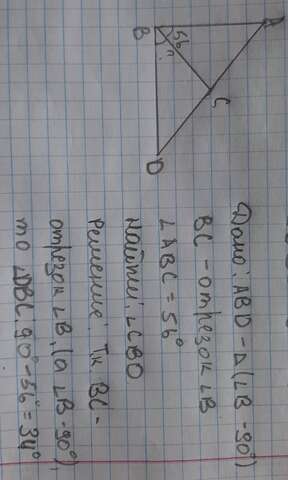 A
B
56
?
C
D
Дано: ABD - Δ (∠B - 90°)
BC - отрезок ∠B
∠ABC = 56°
Найти: ∠CBD
Решение: Тк BC -
отрезок ∠B, (а ∠B - 90°),
то ∠DBC 90° - 56 = 34°